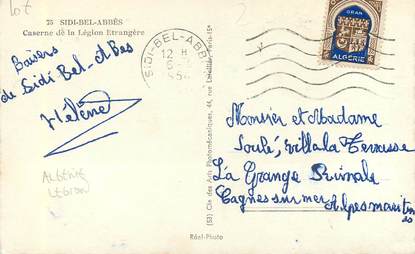 lot
75 SIDI-BEL-ABBÈS
Caserne de la Légion Etrangère
Baisers
de Sidi Bel-Abbes
Hélène
ALGÉRIE
LEGION
SIDI-BEL-ABB
12 H
ORAN
ALGÉRIE
Cie des Arts Photomécaniques, 44, rue
Réel-Photo
Monsieur et Madame
Soulé, villa la Terrasse
La Grange Rimale
Cagnes sur mer Alpes marit
es